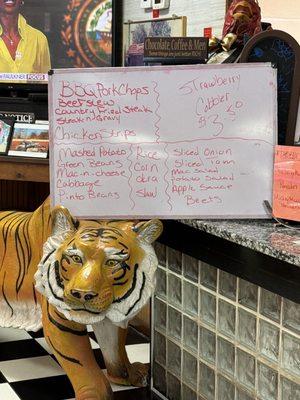 FAULKNER
Chocolate Coffee &
BBQ Pork Chops
Beef Stew
Country Fried Steak
Steak n Gravy
Chicken Strips
Strawberry
Cobbler
$3.50
Mashed Potatos
Green Beans
Mac-n-cheese
Cabbage
Pinto Beans
Rice
Corn
Okra
Slaw
Sliced Onion
Sliced Tom
Mac Salad
Potato Salad
Apple Sauce
Beets